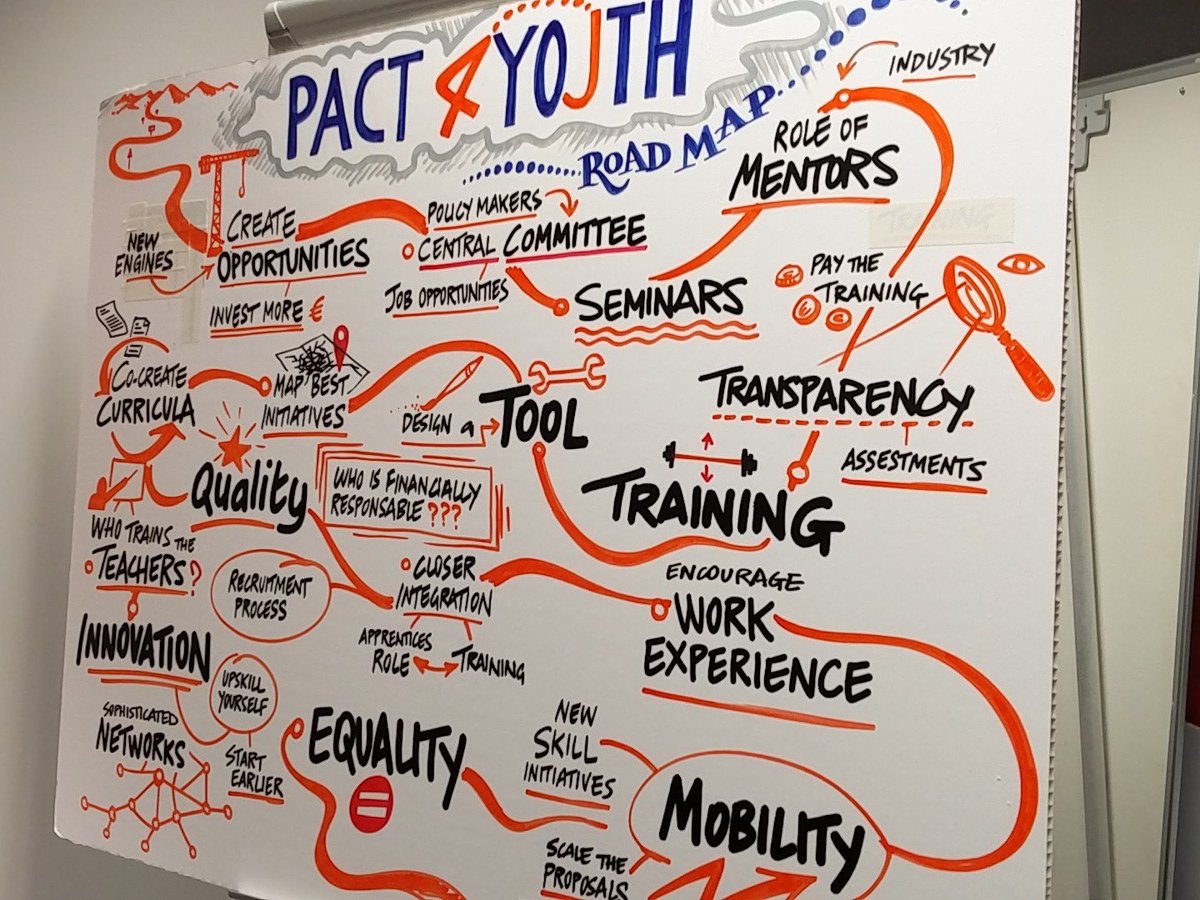 PACT 4 YOUTH
ROAD MAP
INDUSTRY
ROLE OF
MENTORS
TRAINING
NEW
ENGINES
CREATE
OPPORTUNITIES
INVEST MORE €
POLICY MAKERS
CENTRAL COMMITTEE
JOB OPPORTUNITIES
SEMINARS
PAY THE
TRAINING
CO-CREATE
CURRICULA
MAP BEST
INITIATIVES
DESIGN a
TOOL
TRANSPARENCY
ASSESTMENTS
TRAINING
Quality
WHO IS FINANCIALLY
RESPONSABLE ???
WHO TRAINS THE
TEACHERS?
RECRUITMENT
PROCESS
CLOSER
INTEGRATION
APPRENTICES
ROLE
TRAINING
ENCOURAGE
WORK
EXPERIENCE
INNOVATION
UPSKILL
YOURSELF
SOPHISTICATED
NETWORKS
START
EARLIER
EQUALITY
=
NEW
SKILL
INITIATIVES
MOBILITY
SCALE THE
PROPOSALS